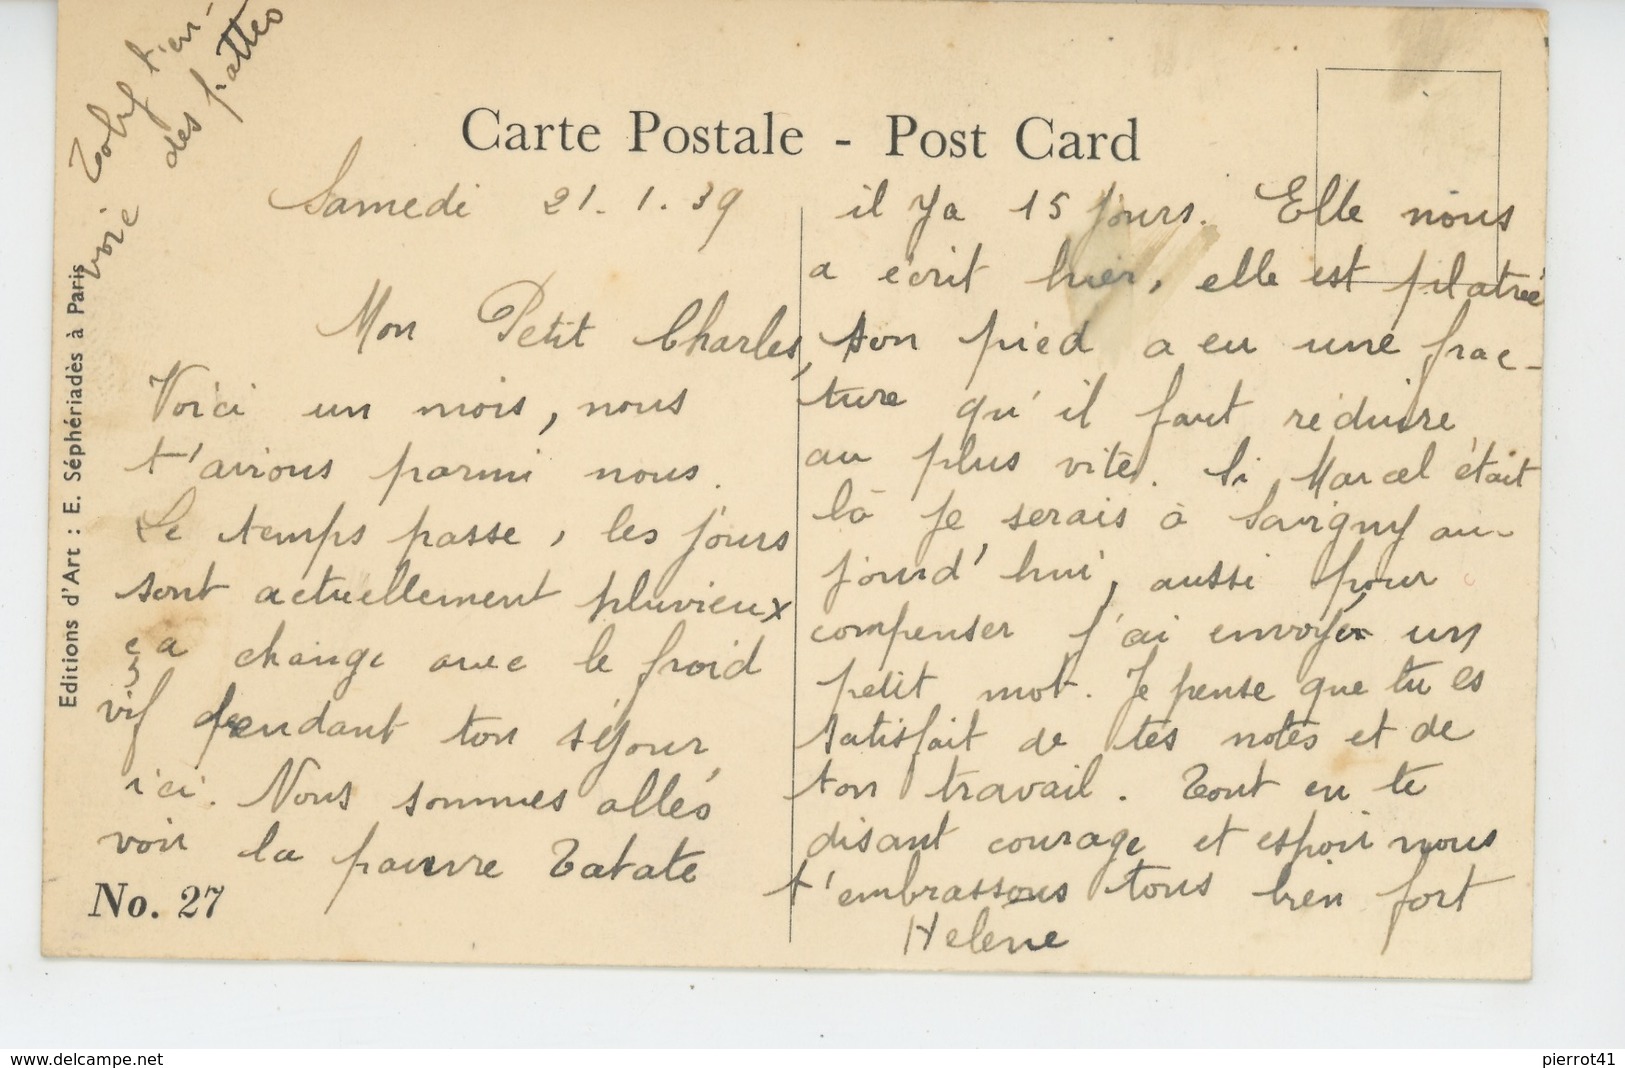 Toby t'en-
voie des pattes
Carte Postale - Post Card
Samedi 21.1.39
Mon Petit Charles,
Voici un mois, nous
t'avions parmi nous.
Le temps passe, les jours
sont actuellement pluvieux
ça change avec le froid
vif pendant ton séjour
ici. Nous sommes allés
voir la pauvre Tatate
il y a 15 jours. Elle nous
a écrit hier, elle est platrée
son pied a eu une frac-
ture qu'il faut réduire
au plus vite. Si Marcel était
là je serais à Savigny au-
jourd'hui, aussi pour
compenser j'ai envoyé un
petit mot. Je pense que tu es
satisfait de tes notes et de
ton travail. Tout en te
disant courage et espoir nous
t'embrassons tous bien fort
Helène
Editions d'Art : E. Séphériadès à Paris
No. 27
www.delcampe.net
pierrot41